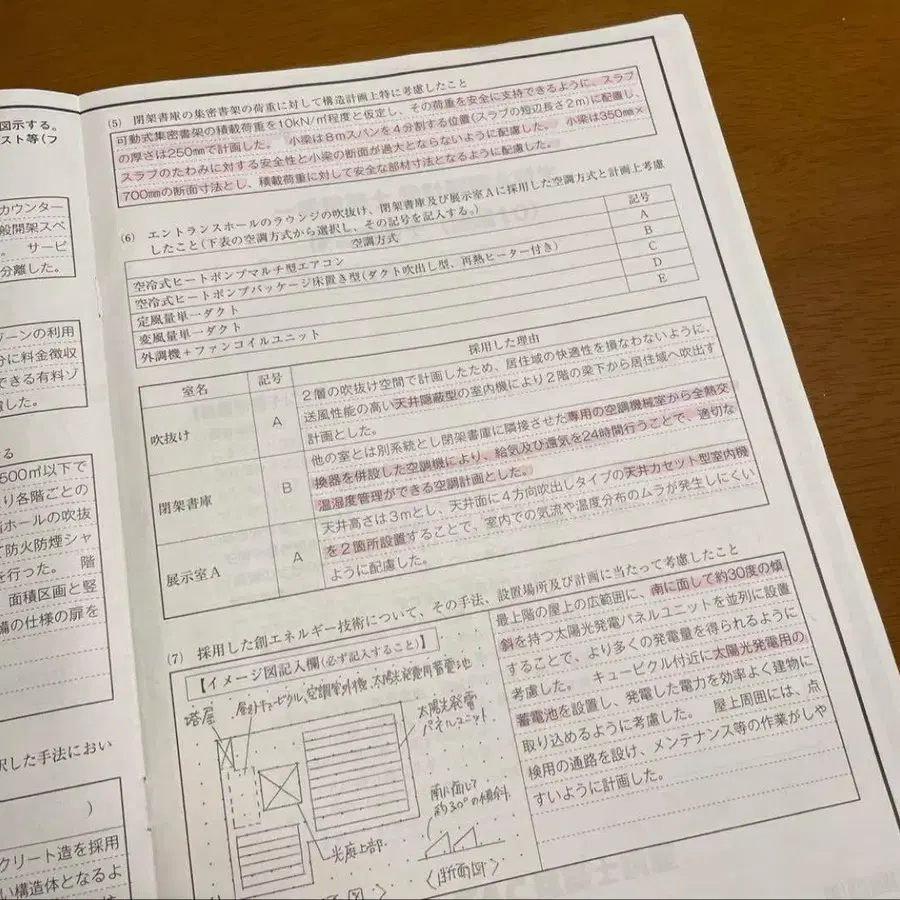 図示する。
スト等(フ
カウンター
般開架スペ
。 サービ
分離した。
ゾーンの利用
分に料金徴収
できる有料ゾ
慮した。
る
500㎡以下で
り各階ごとの
階ホールの吹抜
て防火防煙シャ
を行った。 階
面積区画と竪
備の仕様の扉を
択した手法におい
)
クリート造を採用
い構造体となるよ
(5) 閉架書庫の集密書架の荷重に対して構造計画上特に考慮したこと
可動式集密書架の積載荷重を10kN/㎡程度と仮定し、その荷重を安全に支持できるように、スラブ
の厚さは250㎜で計画した。 小梁は8mスパンを4分割する位置(スラブの短辺長さ2m)に配置し、
スラブのたわみに対する安全性と小梁の断面が過大とならないように配慮した。 小梁は350㎜×
700㎜の断面寸法とし、積載荷重に対して安全な部材寸法となるように配慮した。
(6) エントランスホールのラウンジの吹抜け、閉架書庫及び展示室Aに採用した空調方式と計画上考慮
したこと(下表の空調方式から選択し、その記号を記入する。)
空調方式 記号
空冷式ヒートポンプマルチ型エアコン A
空冷式ヒートポンプパッケージ床置き型(ダクト吹出し型、再熱ヒーター付き) B
定風量単一ダクト C
変風量単一ダクト D
外調機+ファンコイルユニット E
室名 記号 採用した理由
吹抜け A 2層の吹抜け空間で計画したため、居住域の快適性を損なわないように、
送風性能の高い天井隠蔽型の室内機により2階の梁下から居住域へ吹出す
計画とした。
閉架書庫 B 他の室とは別系統とし閉架書庫に隣接させた専用の空調機械室から全熱交
換器を併設した空調機により、給気及び還気を24時間行うことで、適切な
温湿度管理ができる空調計画とした。
展示室A A 天井高さは3mとし、天井面に4方向吹出しタイプの天井カセット型室内機
を2箇所設置することで、室内での気流や温度分布のムラが発生しにくい
ように配慮した。
(7) 採用した創エネルギー技術について、その手法、設置場所及び計画に当たって考慮したこと
【イメージ図記入欄(必ず記入すること)】
屋外キュービクル、空調室外機、太陽光発電用蓄電池
塔屋
太陽光発電
パネルユニット
南に面して
約30°の傾斜
光庭上部
図〉
〈断面図〉
最上階の屋上の広範囲に、南に面して約30度の傾
斜を持つ太陽光発電パネルユニットを並列に設置
することで、より多くの発電量を得られるように
考慮した。 キュービクル付近に太陽光発電用の
蓄電池を設置し、発電した電力を効率よく建物に
取り込めるように考慮した。 屋上周囲には、点
検用の通路を設け、メンテナンス等の作業がしや
すいように計画した。